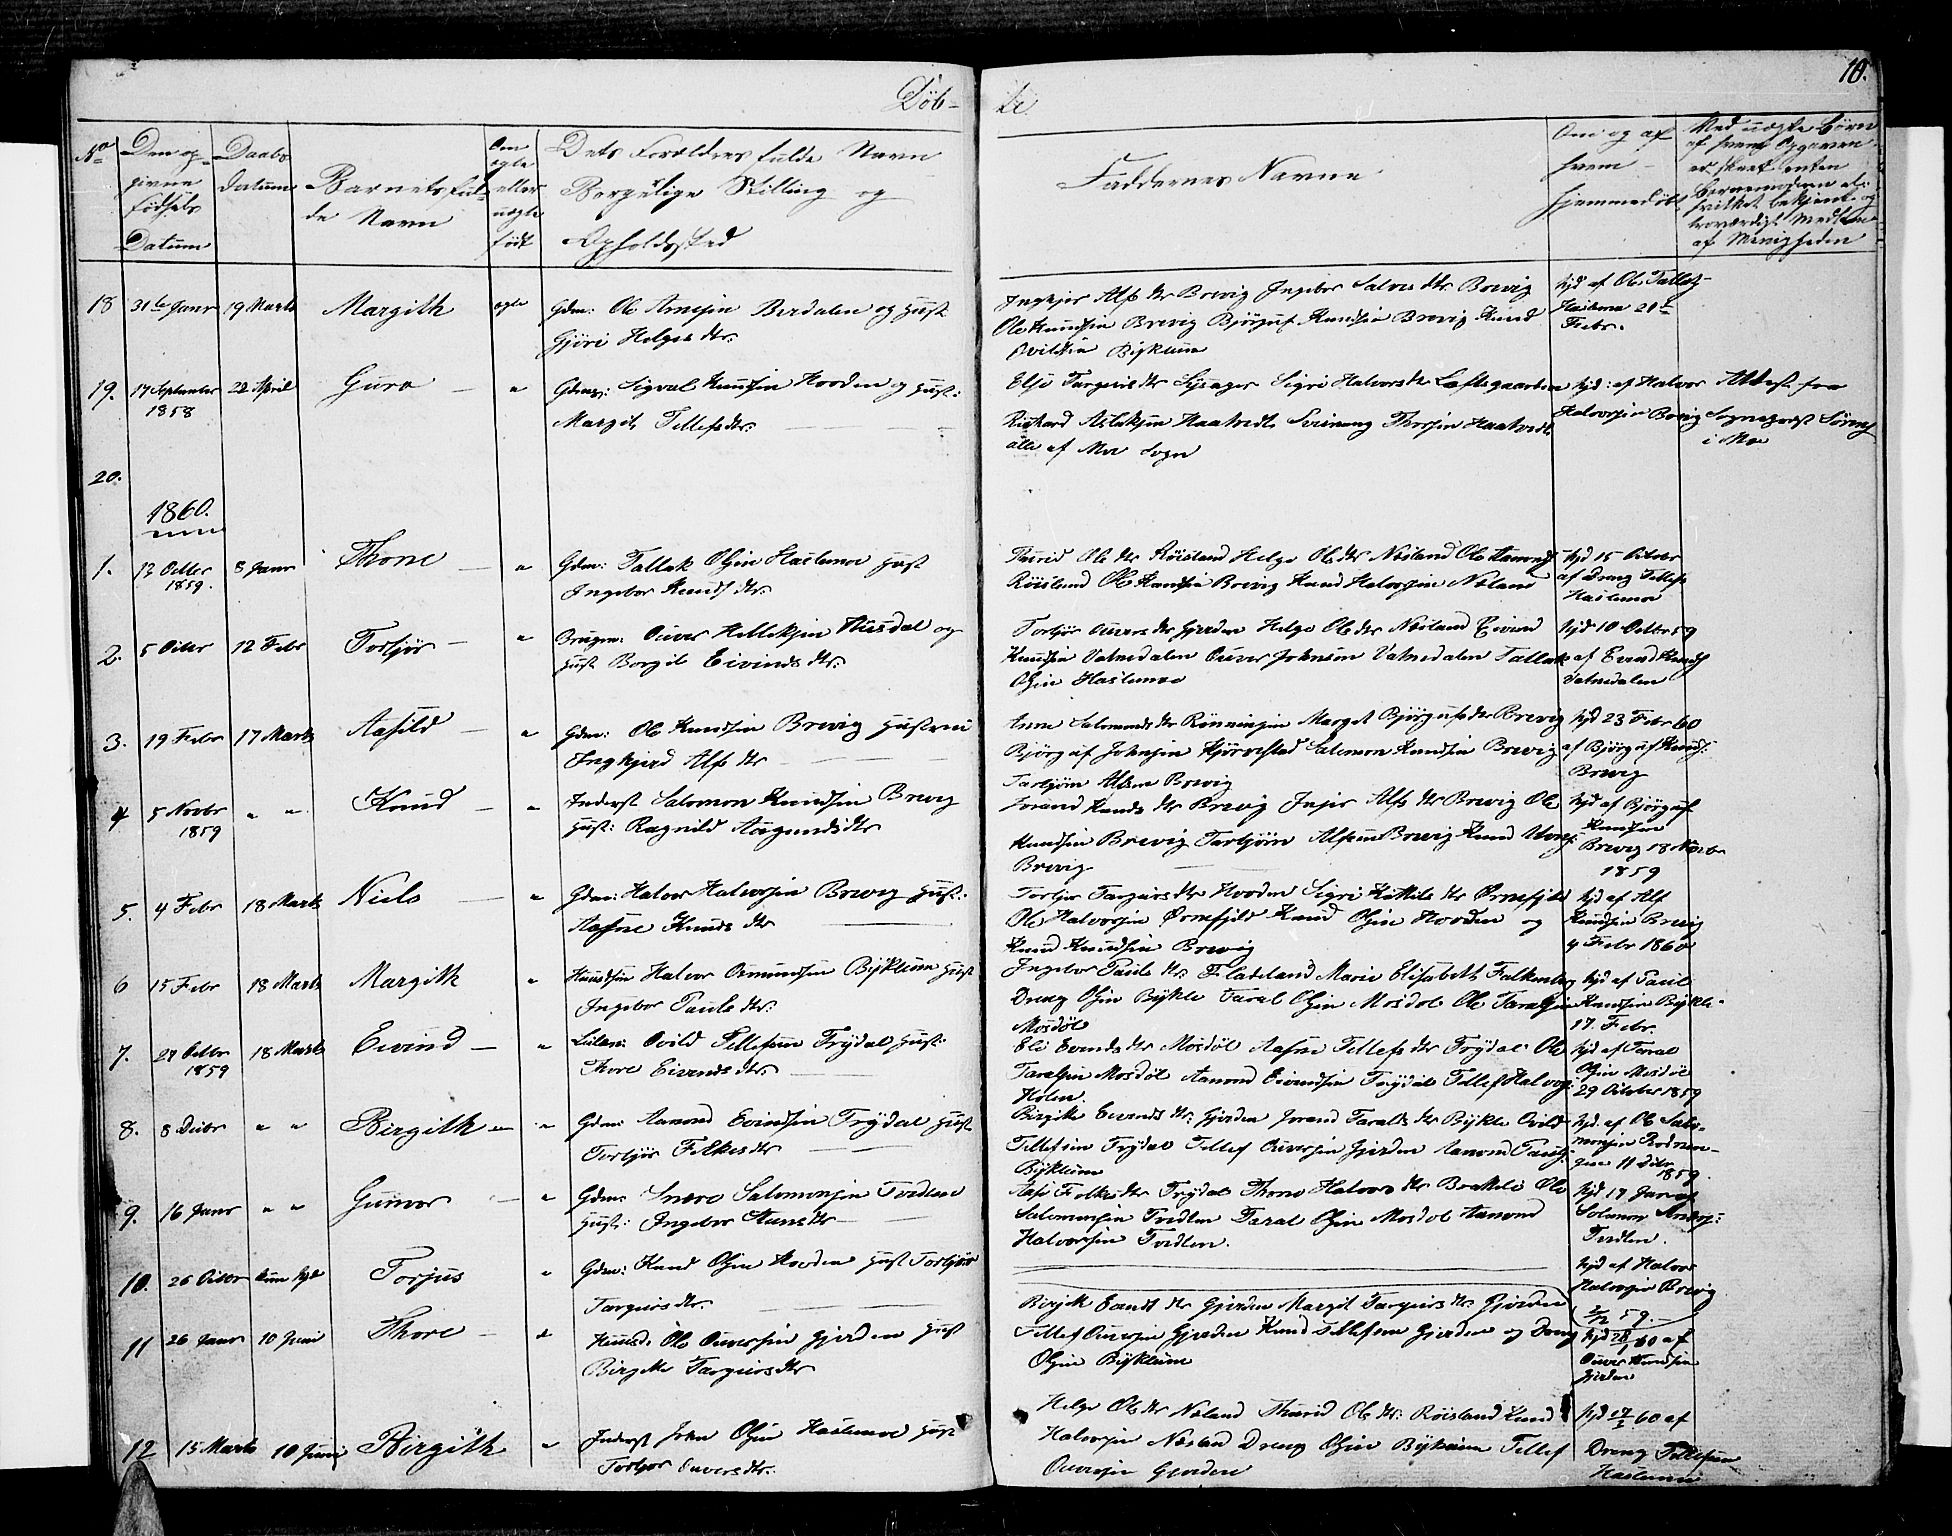 Döb-
de
10.
No
Den opgivne Födsels Datum
Daabs Datum
Barnets fulde Navn
Om ægte eller uægte födt
Dets Forældres fulde Navn Borgelige Stilling og Opholdssted
Faddernes Navne
Om og af hvem hjemmedöbt
Med uægte Börn
18 31te Janr 19 Marts Margith ægte Gdm: Ole Arnesen Berdalen og Hust
Gjöri Helges dtr.
Ingkjer Alfs dtr Brevig Ingebor Salves dtr Brevig
Ole Knudsen Brevig Björguf Knudsen Brevig Knud
Ovildsen Bÿklum
hjd af Ole Tallefs.
Haslemo 20de
Febr.
19. 17 September 22 April Guro — " Gdmd: Sigval Knudsen Hovden og Hust:
1858
Margit Tellefsdtr.
Sigri Halvorsdtr Loftsgaarden
Rickard Aslaksen Haatvedt Sveinung Thorsen Haatvedt
alle af Moe Sogn
hjd: af Halvor
Halvorsen Brevig
Attest fra
Sogneprest Sörens
i Moe
20.
1860.
1. 13 Octbr 8 Janr Thone — " Gdm: Tallak Olsen Haslemoe Hust
1859.
Ingebor Knuds dtr.
Thurid Ols dtr Röisland Helge Ols dtr Nösland Ole Aamunds
Röislund Ole Knudsen Brevig Knud Halvorsen Nösland
hjd 15 October
af Dreng Tellefs
Haslemoe
2. 5 Octbr 12 Febr Torbjör — " Brugm: Ouver Kittelsen Aursdal og
Hust Borgil Eivinds dtr.
Torbjör Ouvers dtr Gjerden Helge Ols dtr Nösland Eivind
Knudsen Vatnedalen Ouver Johnsen Vatnedalen Tallak
Olsen Haslemoe
hjd 10 Octbr 59
af Evend Knuds
Vatnedalen
3. 19 Febr 17 Marts Aasild — " Gdm: Ole Knudsen Brevig Hustru
Ingkjerd Alfs dtr
Anne Salomonds dtr Rönningen Margit Björgufs dtr Brevig
Björguf Johnsen Hjörvestad Salomon Knudsen Brevig
Tarbjörn Alfsen Brevig
hjd 23 Febr 60
af Björguf Knuds.
Brevig
4 5 Novbr " " Knud — " Inderst Salomon Knudsen Brevig
1859
Hust: Ragnild Aasmundsdtr
Jorand Knuds dtr Brevig Injer Alfs dtr Brevig Ole
Knudsen Brevig Tarbjörn Alfsen Brevig Knud
Brevig
hjd af Björguf
Knudsen
Brevig 18 Novbr
1859
5. 4 Febr 18 Marts Niels — " Gdm: Halvor Halvorsen Brevig Hust:
Aasne Knuds dtr
Torbjör Targiers dtr Hovden Sigri Kittils dtr Örnefjeld
Ole Halvorsen Örnefjeld Knud Olsen Hovden og
Knud Knudsen Brevig
hjd af Alf
Knudsen Brevig
9 Febr 1860
6 15 Febr 18 Marts Margith " Huusm Halvor Osmundsen Bÿklum Hust
Ingebor Pauls dtr.
Ingebor Pauls dtr Fladeland Marie Elisabeth Falkenberg
Dreng Olsen Bÿkle Taral Olsen Mosdöl Ole Taralsen
Mosdöl
hjd af Paul
Knudsen Bÿkle.
17. Febr.
7. 27 Octbr 18 Marts Eivind — " Ovild Tellefsen Trÿdal Hust:
1859
Thore Eivends dtr
Eli Evends dtr Mosdöl Aasne Tellefs dtr Trÿdal Ole
Taralsen Mosdöl Aamond Eivendsen Trÿdal Tellef Halvors
Holen.
hjd af Taral
Olsen Mosdöl
29 October 1859
8. 8 Decbr " " Birgith — " Gdm: Aamond Evindsen Trÿdal Hust
Torbjör Folkes dtr
Birgith Evends dtr: Gjerden Jorand Taralds dtr Bÿkle Ovild
Tellefsen Trÿdal Tellef Ouversen Gjerden Aamond Pauls
Bÿklum
hjd. af Ole Salo-
monsen
11 Decbr
1859.
9. 16 Janr " " Gunvor — " Gdm: Snære Salomonsen Tvedten
Hust: Ingebor Aanes dtr
Aasi Folkes dtr Trÿdal Thone Halvors dtr Bratteli Ole
Salomonsen Tvedten Taral Olsen Mosdöl Aamond
Halvorsen Tvedten.
hjd 17 Jan af
Solomon Anders:
Tvedten.
10. 26 Octbr kun hjd Torjus " Gdm: Knud Olsen Hovden Hust Torbjör
Targiersdtr.
hjd af Halvor
Halvorsen Brevig
1/12 59.
11 26 Janr 10 Juni Thore — " Huusm: Ole Ouversen Gjerden Hust
Birgithe Targiers dtr
Birgith Evends dtr Gjerden Margit Targiers dtr Gjerden
Tellef Ouversen Gjerden Knud Tellefsen Gjerden og Dreng
Olsen Bÿklum
hjd 28/1 60 af
Ouver Knudsen
Gjerden
12 15 Marts 10 Juni Birgith " Inderst John Olsen Haslemoe Hust
Torbjor Ouversdtr.
Helge Ols dtr Nösland Thurid Ols dtr: Röisland Knud
Halvorsen Nösland Dreng Olsen Bÿklum Tellef
Ouversen Gjerden
hjd 60 af
Dreng Tellefsen
Haslemoe